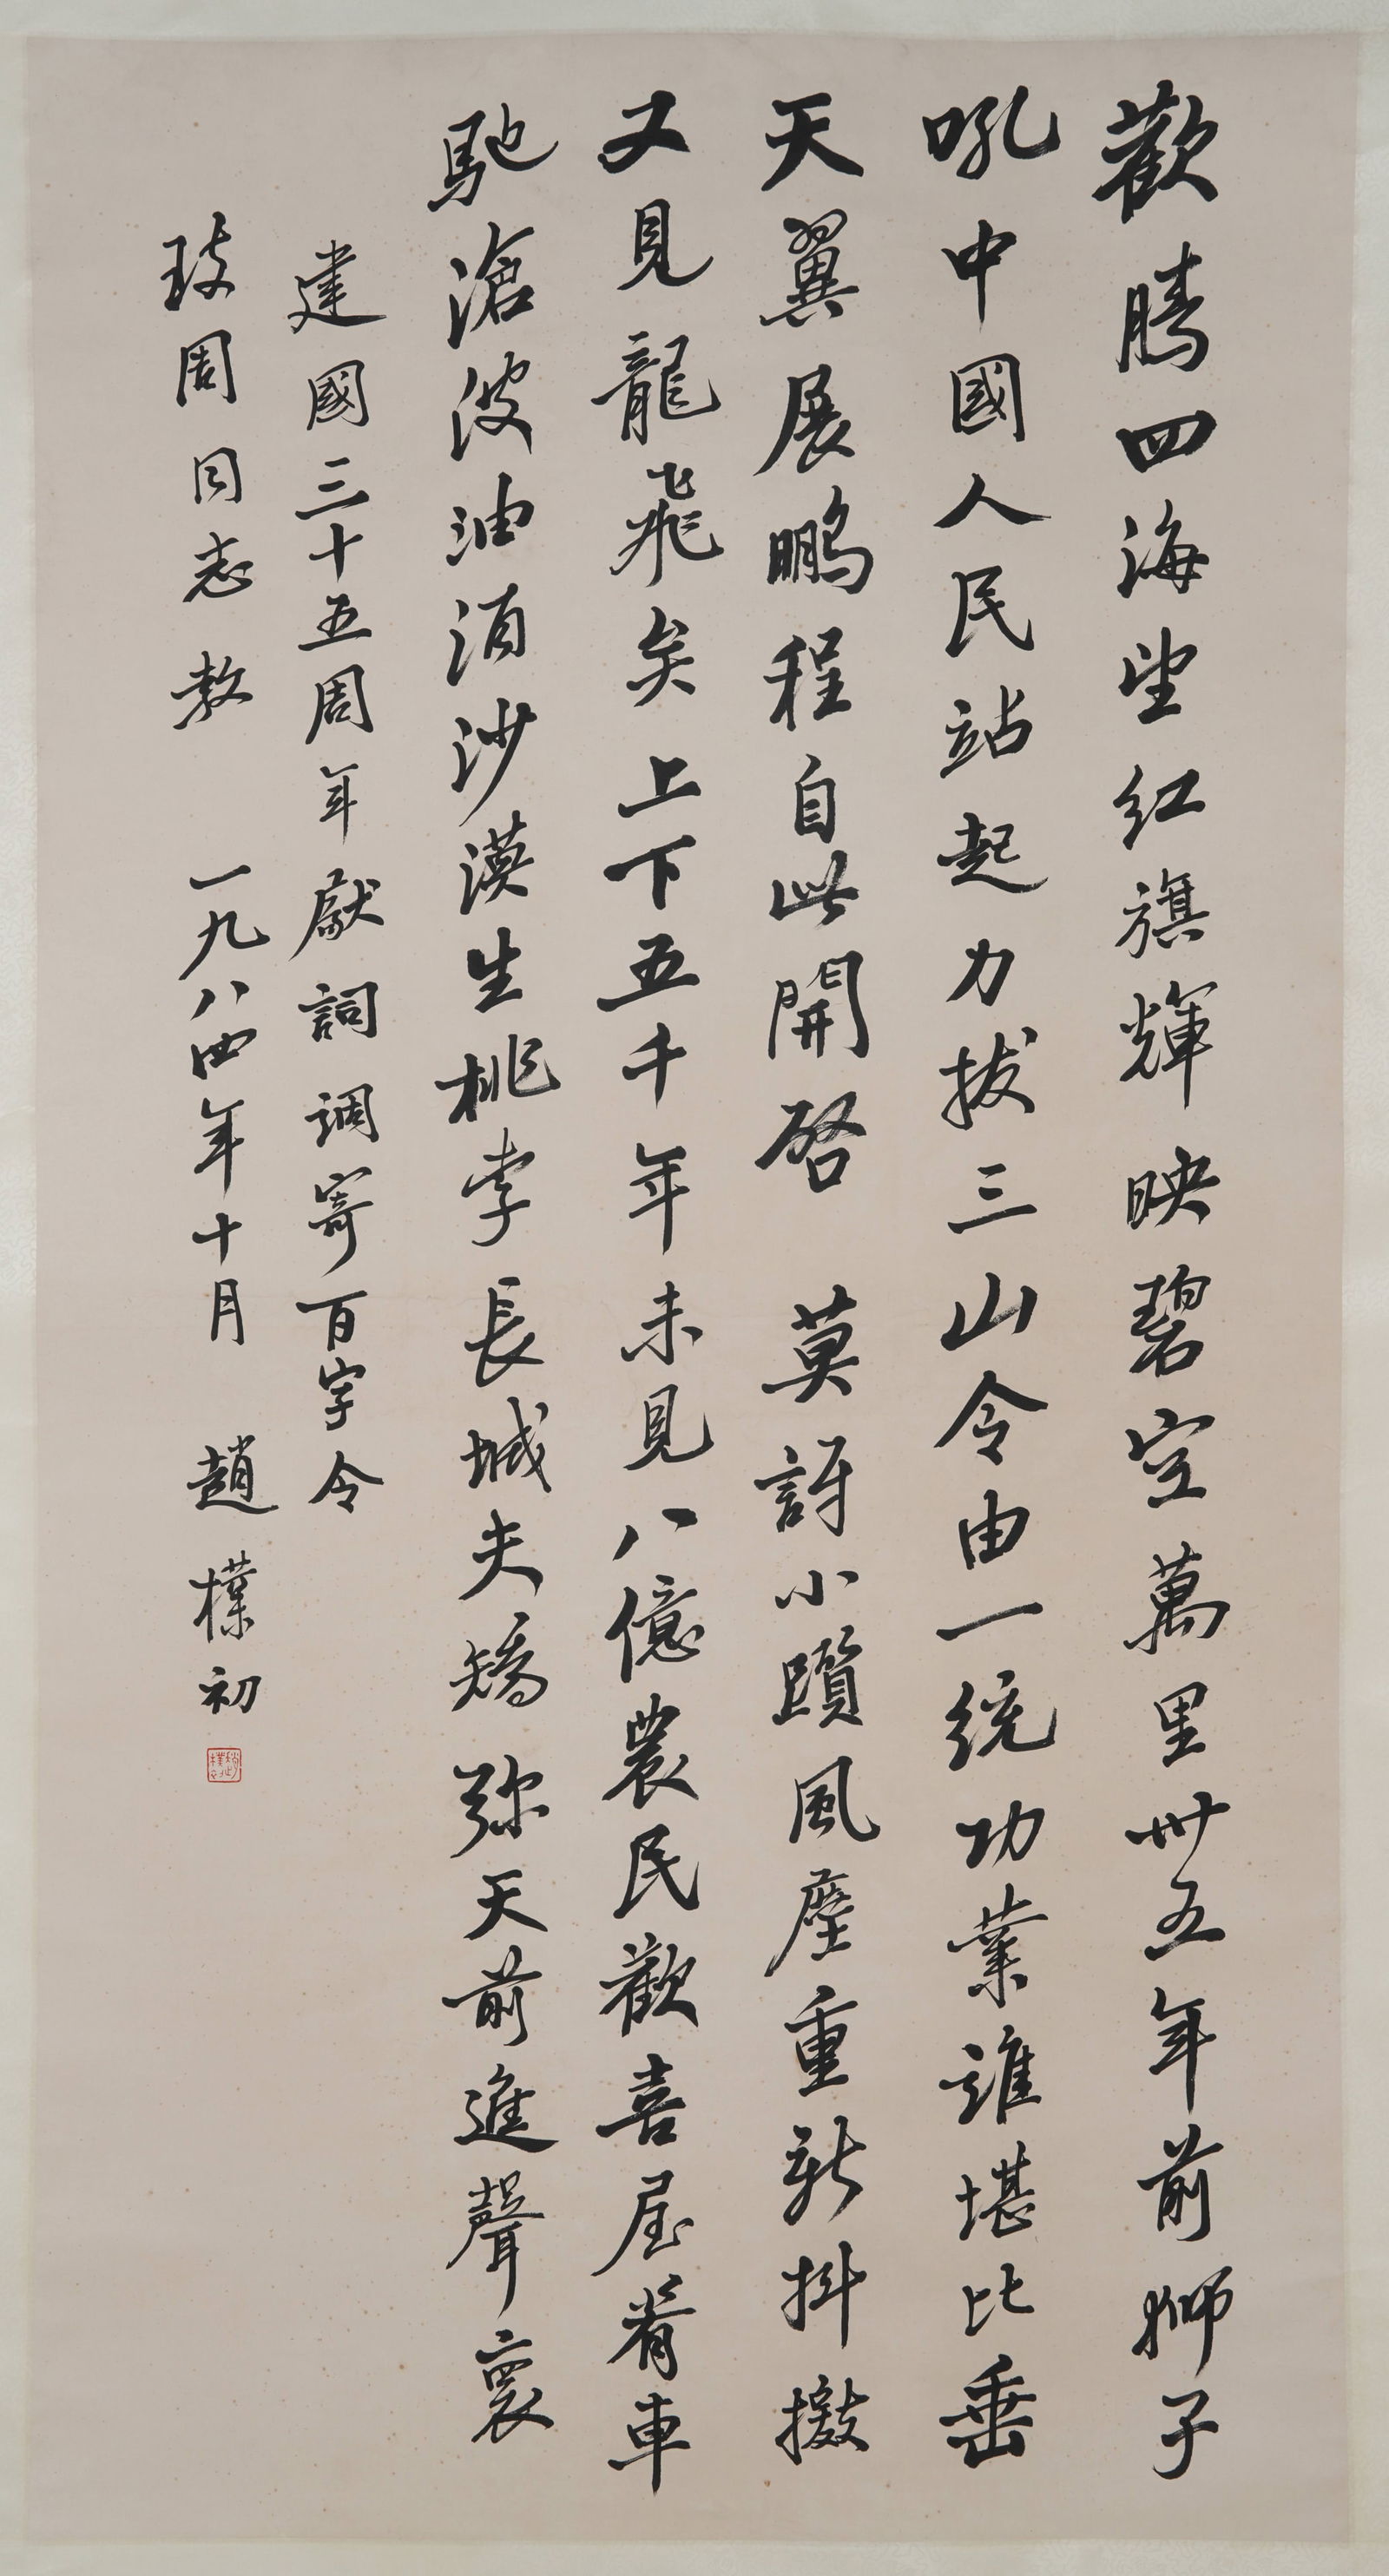 歡騰四海望紅旗輝映碧空萬里卅五年前獅子
吼中國人民站起力拔三山令由一統功業誰堪比垂
天翼展鵬程自此開啓莫訝小躓風塵重新抖擻
又見龍飛矣上下五千年未見八億農民歡喜屋脊車
馳滄波油湧沙漠生桃李長城夭矯弥天前進聲裏
建國三十五周年獻詞調寄百字令
玫周同志教 一九八四年十月 趙樸初
趙樸初